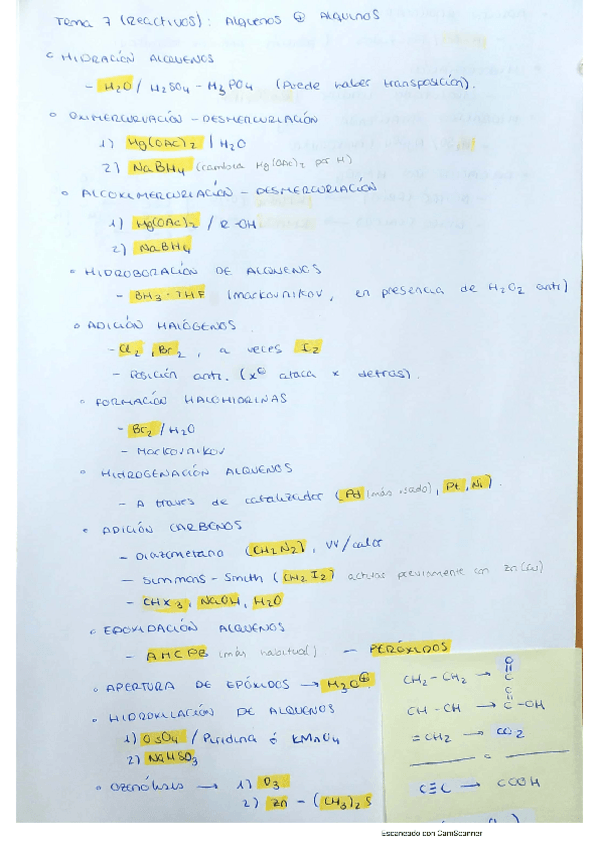 Tema 7 (Reactivos): ALQUENOS ⊕ ALQUINOS
◦ HIDRACIÓN ALQUENOS
- H2O / H2SO4 - H3PO4 (Puede haber transposición).
◦ OXIMERCURACIÓN - DESMERCURIACIÓN
1) Hg(OAc)2 / H2O
2) NaBH4 (cambia Hg(OAc)2 por H)
◦ ALCOXIMERCURIACIÓN - DESMERCURIACIÓN
1) Hg(OAc)2 / R-OH
2) NaBH4
◦ HIDROBORACIÓN DE ALQUENOS
- BH3·THF (markovnikov, en presencia de H2O2 anti)
◦ ADICIÓN HALÓGENOS
- Cl2, Br2, a veces I2
- Posición anti. (x⊖ ataca x detrás).
◦ FORMACIÓN HALOHIDRINAS
- Br2 / H2O
- Markovnikov
◦ HIDROGENACIÓN ALQUENOS
- A traves de catalizador (Pd (más usado), Pt, Ni).
◦ ADICIÓN CARBENOS
- Diazometano (CH2N2), UV/calor
- Simmons - Smith (CH2I2) actuas previamente con Zn(Cu)
- CHX3, NaOH, H2O
◦ EPOXIDACIÓN ALQUENOS
- AMCPB (más habitual) - PERÓXIDOS
◦ APERTURA DE EPÓXIDOS → H3O⊕
◦ HIDROXILACIÓN DE ALQUENOS
1) OsO4 / Piridina ó KMnO4
2) NaHSO3
◦ OZONÓLISIS → 1) O3
2) Zn - (CH3)2S
CH2-CH2 → O C
CH-CH → O C-OH
=CH2 → CO2
C≡C → COOH
Escaneado con CamScanner